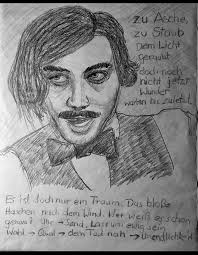 zu Asche,
zu Staub
Dem Licht
geraubt
doch noch
nicht jetzt
Wunder
warten bis zuletzt.
Es ist doch nur ein Traum. Das bloße
Haschen nach dem Wind. Wer weiß es schon
genau? Uhr → Sand.
Wohl → Qual → dem Tod nah → Unendlichkeit